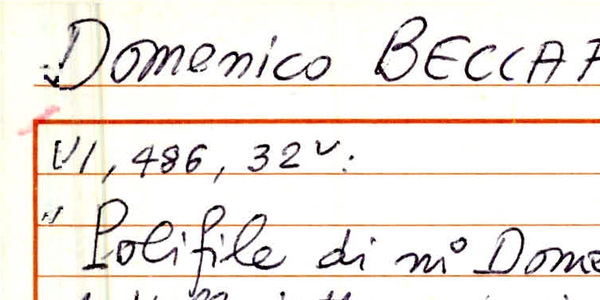 Domenico BECCAF
VI, 486, 32v:
" Polifile di m° Dome